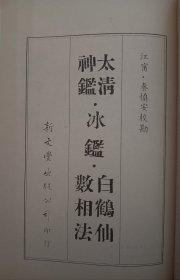 江甯·秦慎安校勘
太清神鑑·冰鑑·白鶴仙數相法
新文豐出版公司印行